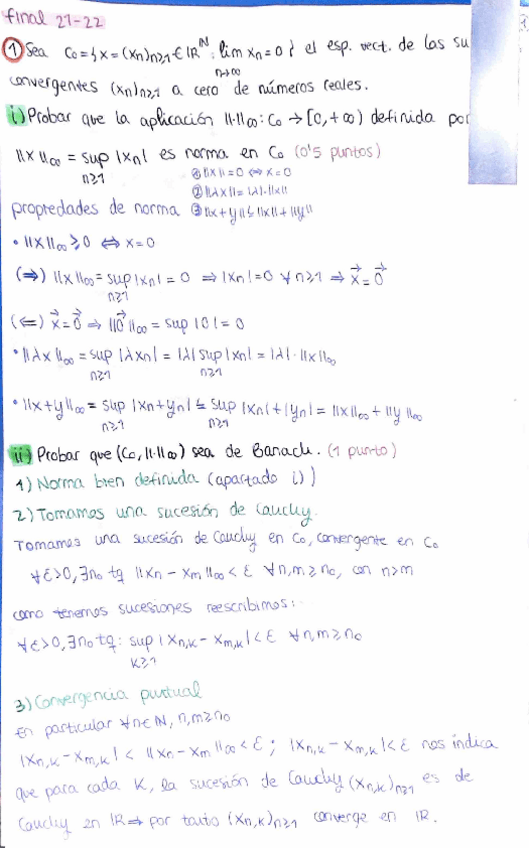 final 21-22
① Sea C₀ = {x = (xn)n≥1 ∈ ℝ^ℕ : lim xn = 0} el esp. vect. de las su
n→∞
convergentes (xn)n≥1 a cero de números reales.
i) Probar que la aplicación ||·||∞ : C₀ → [0, +∞) definida por
||x||∞ = sup |xn| es norma en C₀ (0'5 puntos)
n≥1
① ||x|| = 0 ⇔ x = 0
② ||λx|| = |λ|·||x||
propiedades de norma ③ ||x+y|| ≤ ||x|| + ||y||
• ||x||∞ ≥ 0 ⇔ x = 0
(⇒) ||x||∞ = sup |xn| = 0 ⇒ |xn| = 0 ∀n≥1 ⇒ x⃗ = 0⃗
n≥1
(⇐) x⃗ = 0⃗ ⇒ ||0⃗||∞ = sup |0| = 0
• ||λx||∞ = sup |λxn| = |λ| sup |xn| = |λ|·||x||∞
n≥1 n≥1
• ||x+y||∞ = sup |xn + yn| ≤ sup |xn| + |yn| = ||x||∞ + ||y||∞
n≥1 n≥1
ii) Probar que (C₀, ||·||∞) sea de Banach. (1 punto)
1) Norma bien definida (apartado i))
2) Tomamos una sucesión de Cauchy.
Tomamos una sucesión de Cauchy en C₀, convergente en C₀
∀ε>0, ∃n₀ tq ||xn − xm||∞ < ε ∀n,m ≥ n₀, con n>m
como tenemos sucesiones reescribimos:
∀ε>0, ∃n₀ tq: sup |xn,k − xm,k| < ε ∀n,m ≥ n₀
k≥1
3) Convergencia puntual
En particular ∀n∈ℕ, n,m ≥ n₀
|xn,k − xm,k| < ||xn − xm||∞ < ε ; |xn,k − xm,k| < ε nos indica
que para cada K, la sucesión de Cauchy (xn,k)n≥1 es de
Cauchy en ℝ ⇒ por tanto (xn,k)n≥1 converge en ℝ.